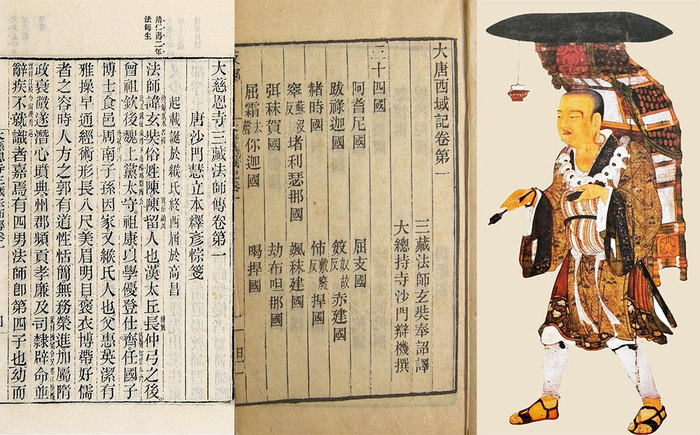 隋仁壽二年
法師生
大慈恩寺三藏法師傳卷第一
唐沙門慧立本釋彥悰箋
起載誕於緱氏終西屆於高昌
法師諱玄奘俗姓陳陳留人也漢太丘長仲弓之後
曾祖欽後魏上黨太守祖康以學優登仕齊任國子
博士食邑周南子孫因家又緱氏人也父惠英潔有
雅操早通經術形長八尺美眉明目褒衣博帶好儒
者之容時人方之郭有道性恬簡無務榮進加屬隋
政衰微遂潛心墳典州郡頻貢孝廉及司隸辟命並
辭疾不就識者嘉焉有四男法師即第四子也幼而
大唐西域記卷第一
三藏法師玄奘奉詔譯
大總持寺沙門辯機撰
三十四國
阿耆尼國 屈支國
跋祿迦國 笯奴故反赤建國
赭時國 怖敷廢反捍國
窣蘇沒反堵利瑟那國 颯秣建國
弭秣賀國 劫布呾那國
屈霜去你迦國 喝捍國